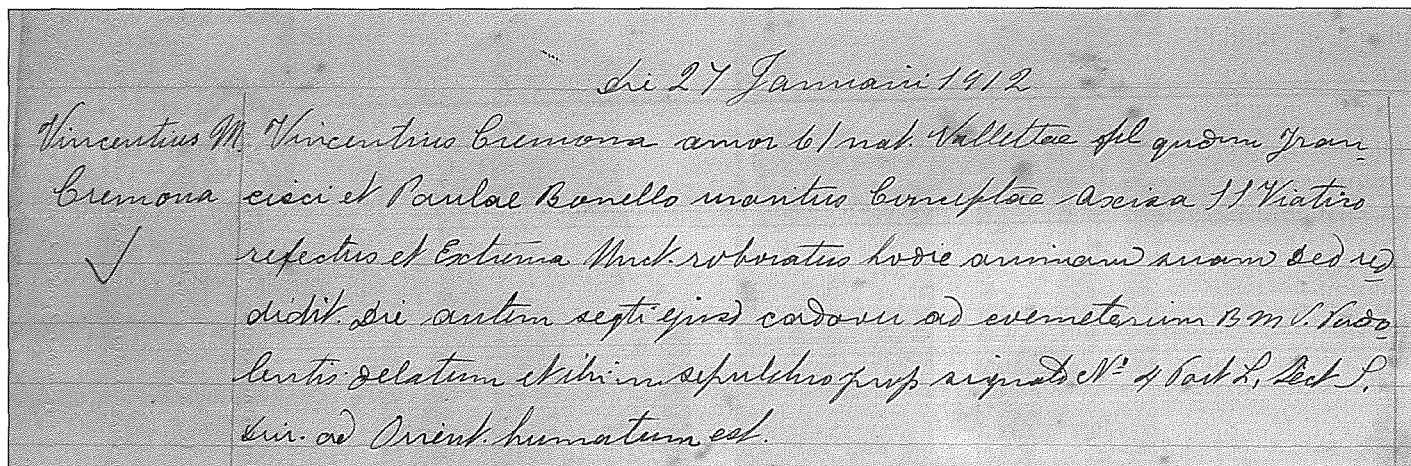 die 27 Januarii 1912
Vincentius M. Vincentius Cremona annor 61 nat. Vallettae fil qudm Fran-
Cremona cisci et Paulae Bonello maritus Conceptae Axisa SS Viatico
refectus et Extrema Unct. roboratus hodie animam suam Deo red
didit. Die autem seqti ejusd cadaver ad coemeterium B M V. Perdo
lentis delatum et ibi in sepulchro prop signato Nº 4 Part L, Sect S,
Div. ad Orient. humatum est.